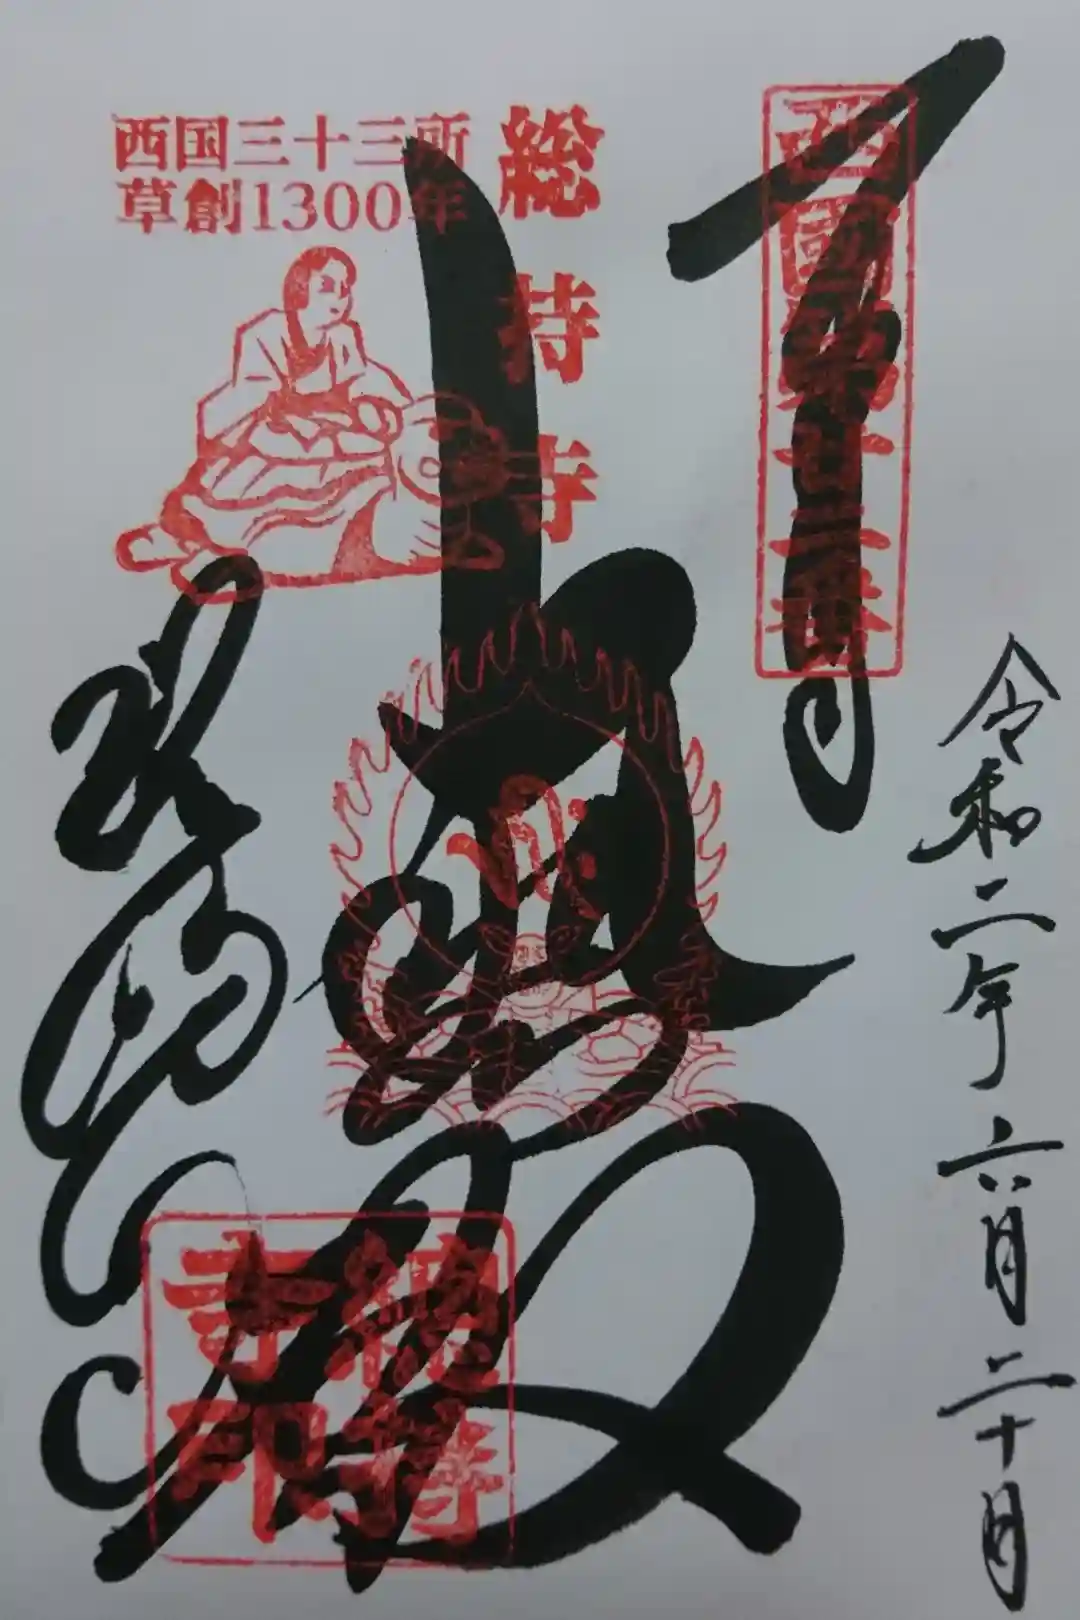 西國第廿二番
令和二年六月二十日
大悲殿
総持寺
西国三十三所
草創1300年
総持寺
總持寺印